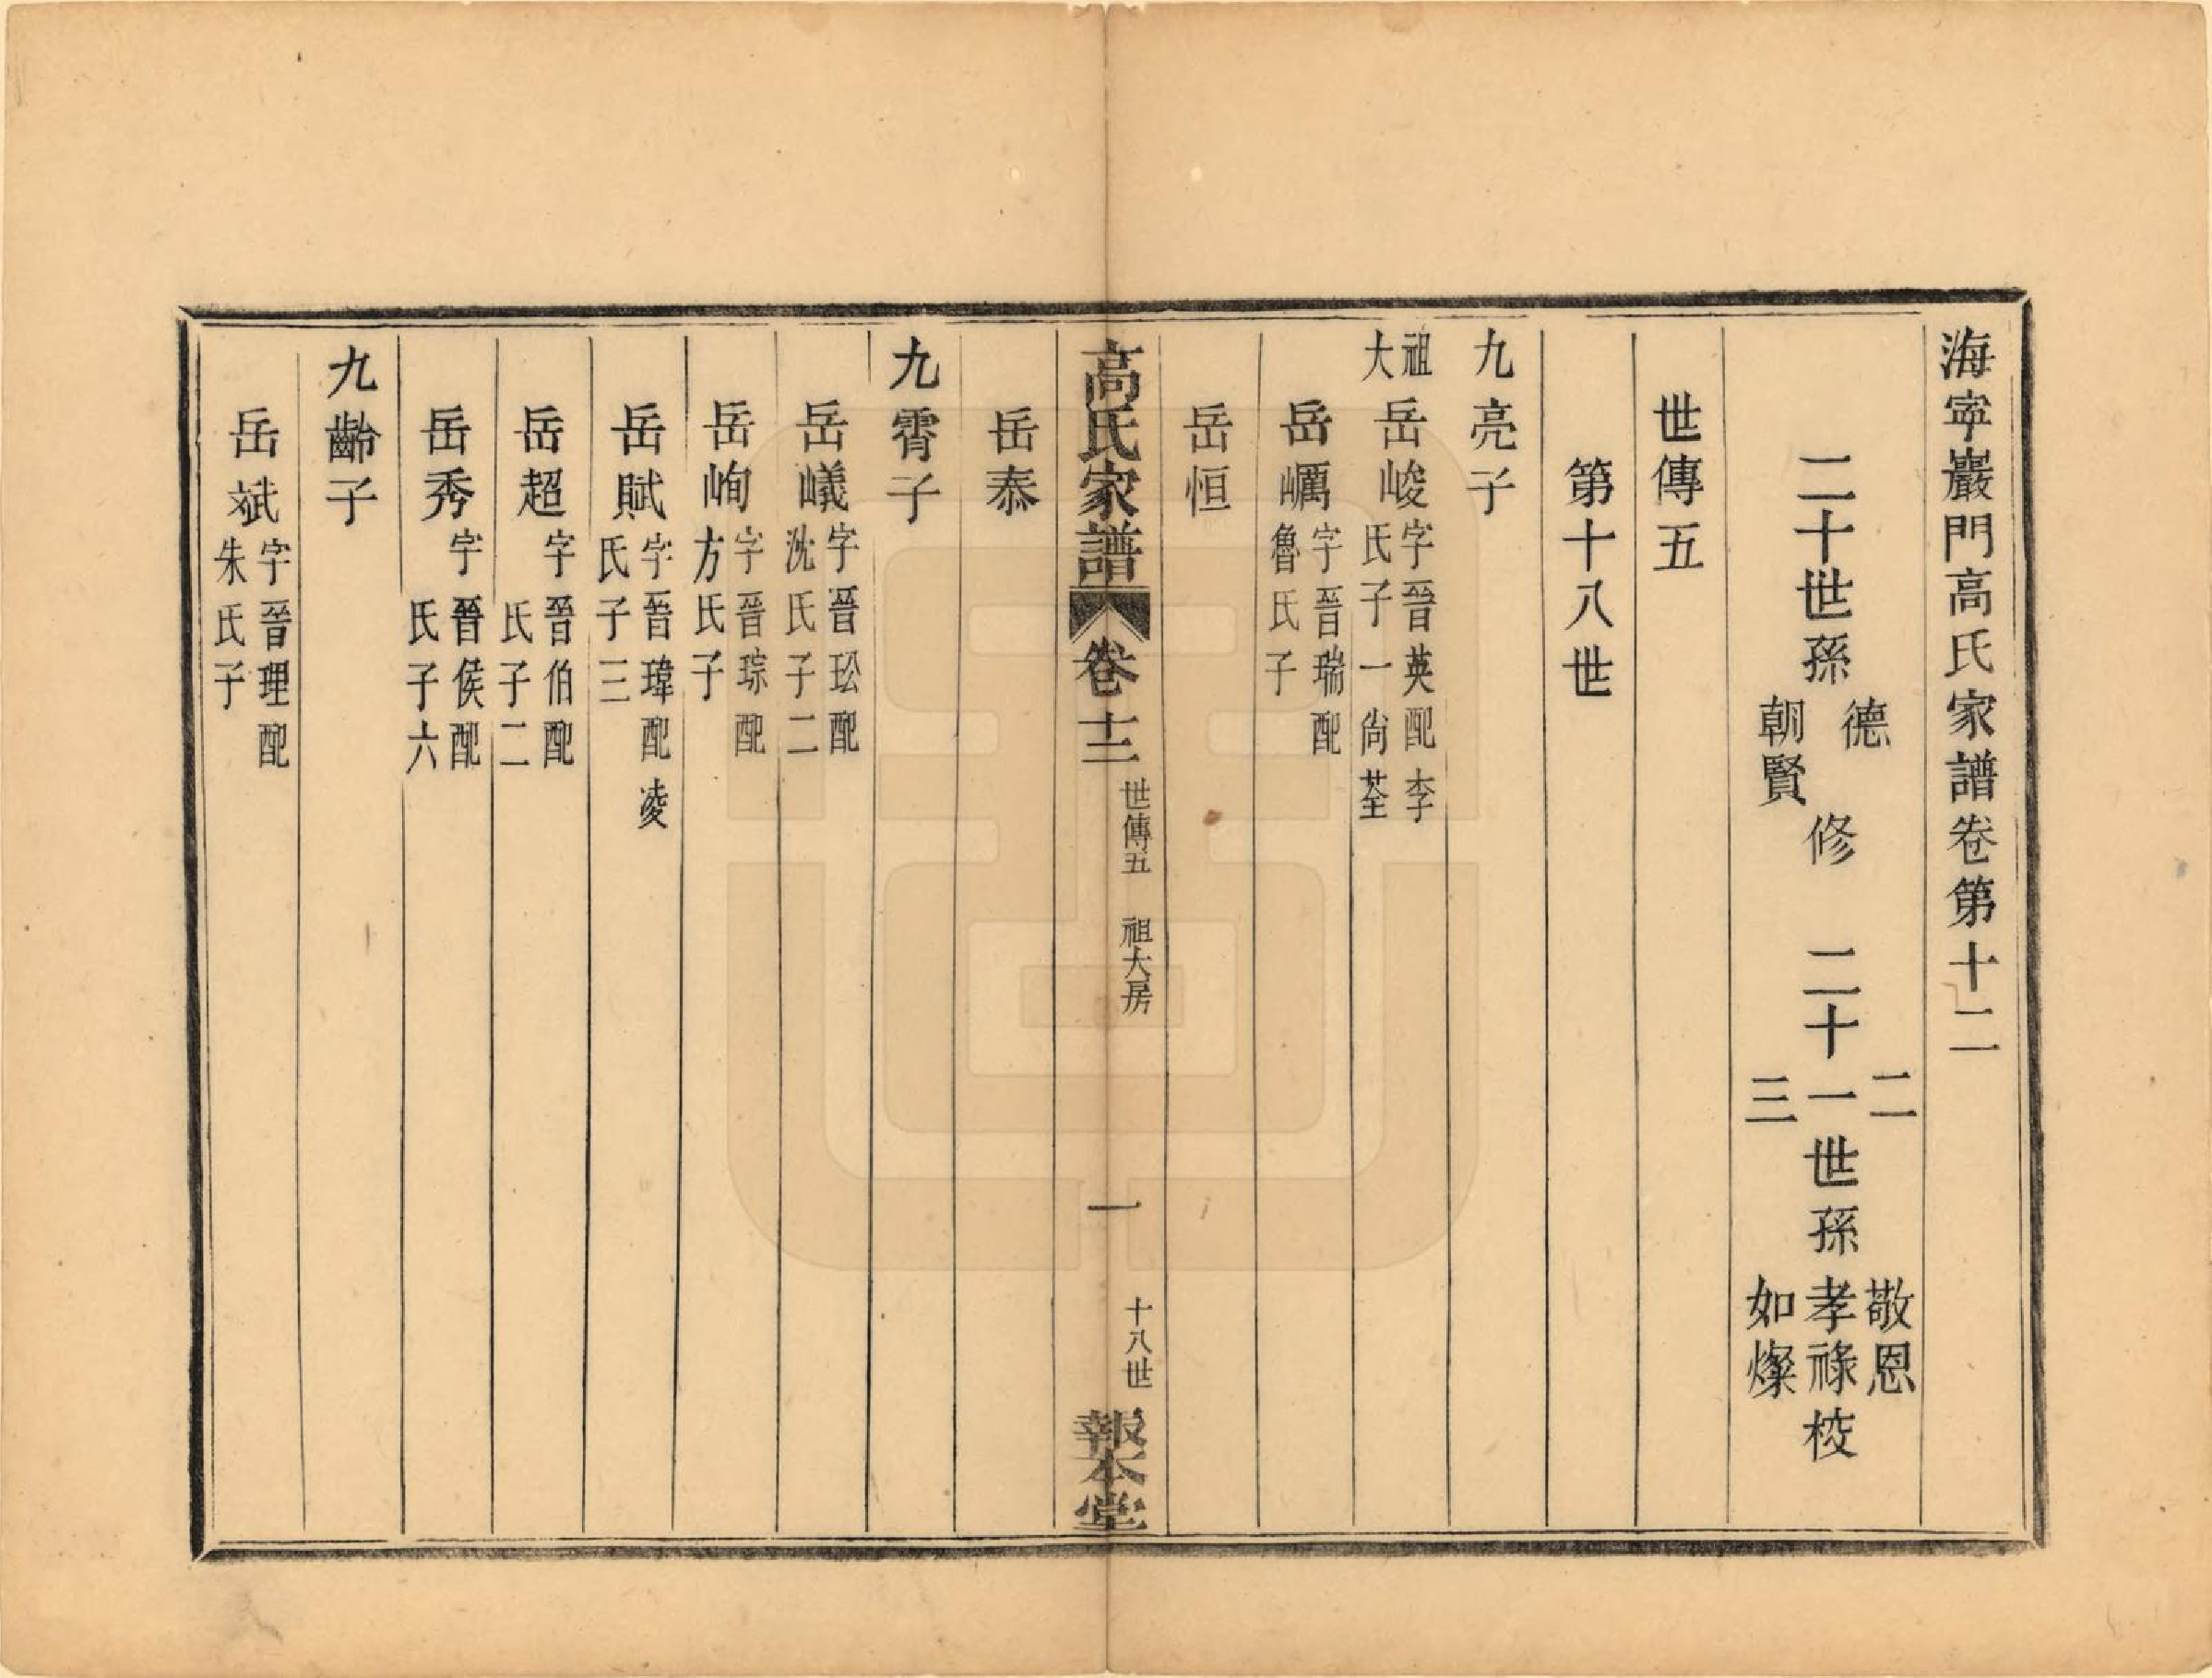 海寧巖門高氏家譜卷第十二
二十世孫 德 朝賢 修 二十一世孫 二 三 敬恩 孝祿 如燦 校
世傳五
第十八世
九亮子
祖大 岳峻 字晉英配李氏子一尚荃
岳𡿋 字晉瑞配魯氏子
岳恒
高氏家譜 卷十二 世傳五 祖大房 一 十八世 報本堂
岳泰
九霄子
岳嶬 字晉玜配沈氏子二
岳峋 字晉琮配方氏子
岳賦 字晉瑋配凌氏子三
岳超 字晉伯配 氏子二
岳秀 字晉侯配 氏子六
九齡子
岳斌 字晉理配朱氏子